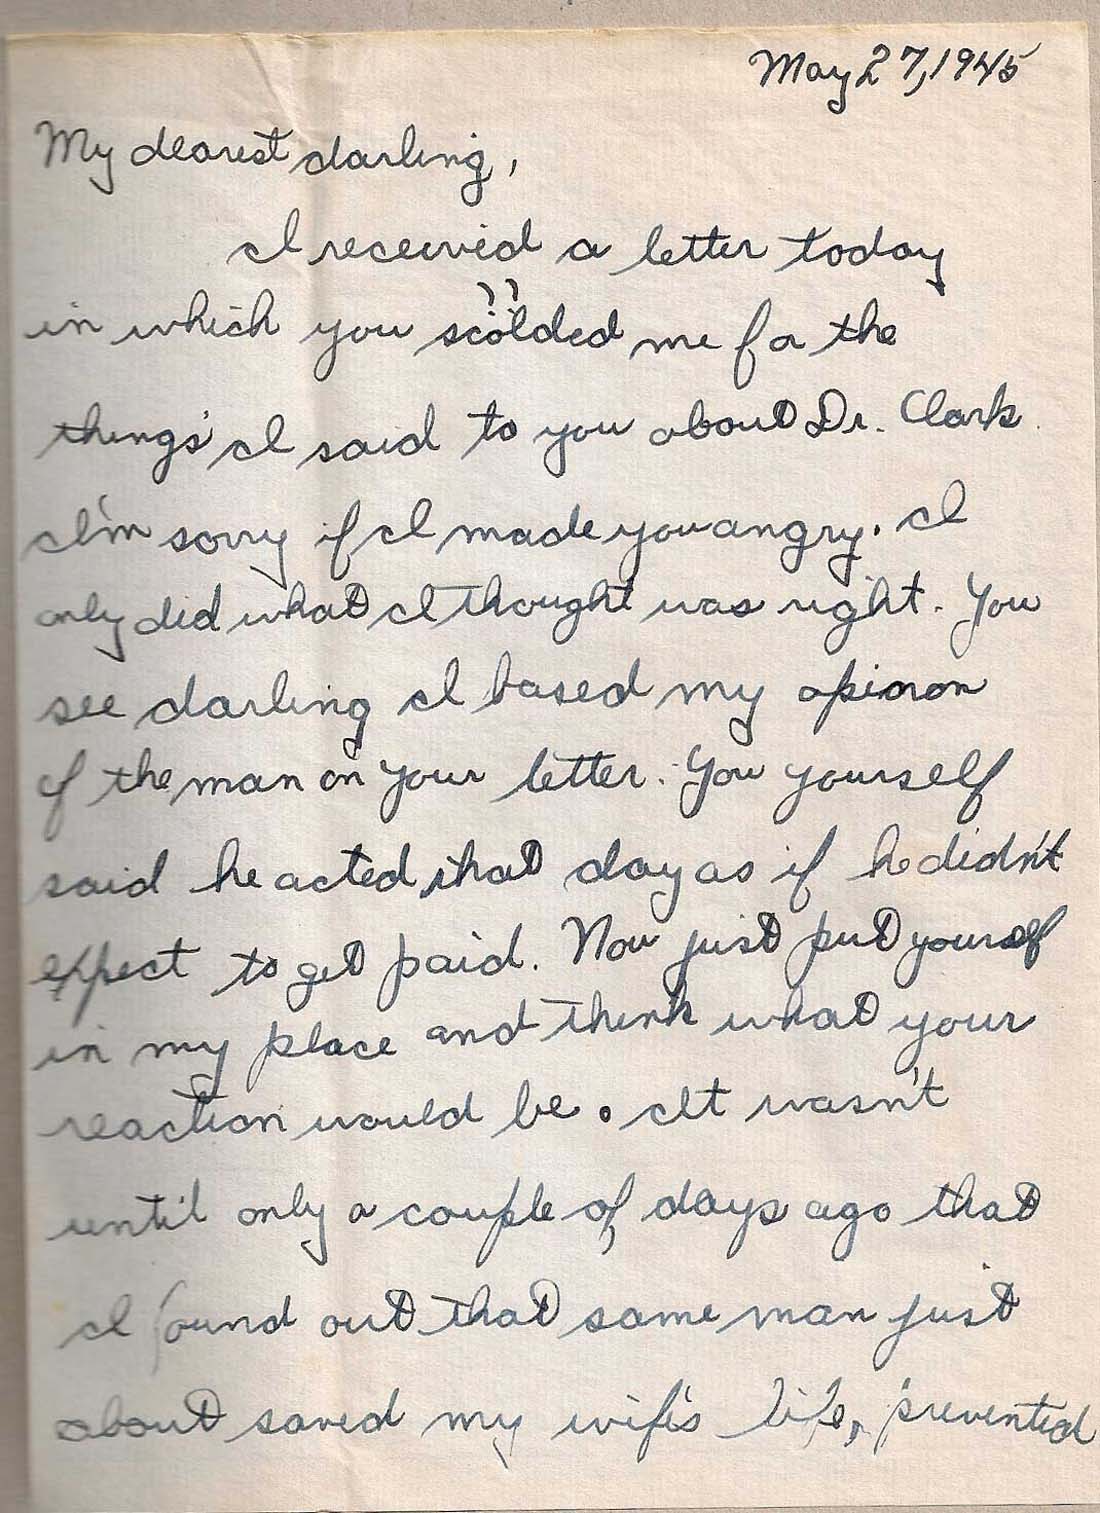 May 27, 1945
My dearest darling,
I received a letter today
in which you "scolded me for the
things I said to you about Dr. Clark
I'm sorry if I made you angry. I
only did what I thought was right. You
see darling I based my opinion
of the man on your letter. You yourself
said he acted that day as if he didn't
expect to get paid. Now just put yourself
in my place and think what your
reaction would be. It wasn't
until only a couple of days ago that
I found out that same man just
about saved my wife's life, prevented